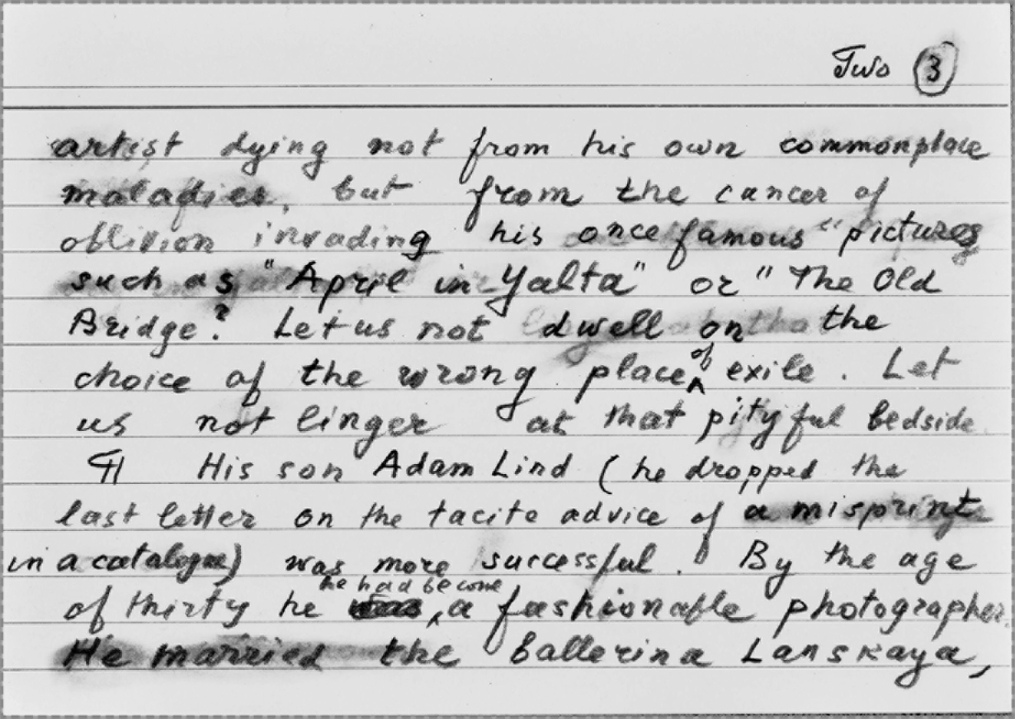 Two 3
artist dying not from his own commonplace
maladies, but from the cancer of
oblivion invading his once famous "pictures
such as "April in Yalta" or "The Old
Bridge? Let us not dwell on the
choice of the wrong place of exile. Let
us not linger at that pityful bedside.
¶ His son Adam Lind (he dropped the
last letter on the tacite advice of a misprint
in a catalogue) was more successful. By the age
he had become
of thirty he a fashionable photographer.
He married the ballerina Lanskaya,